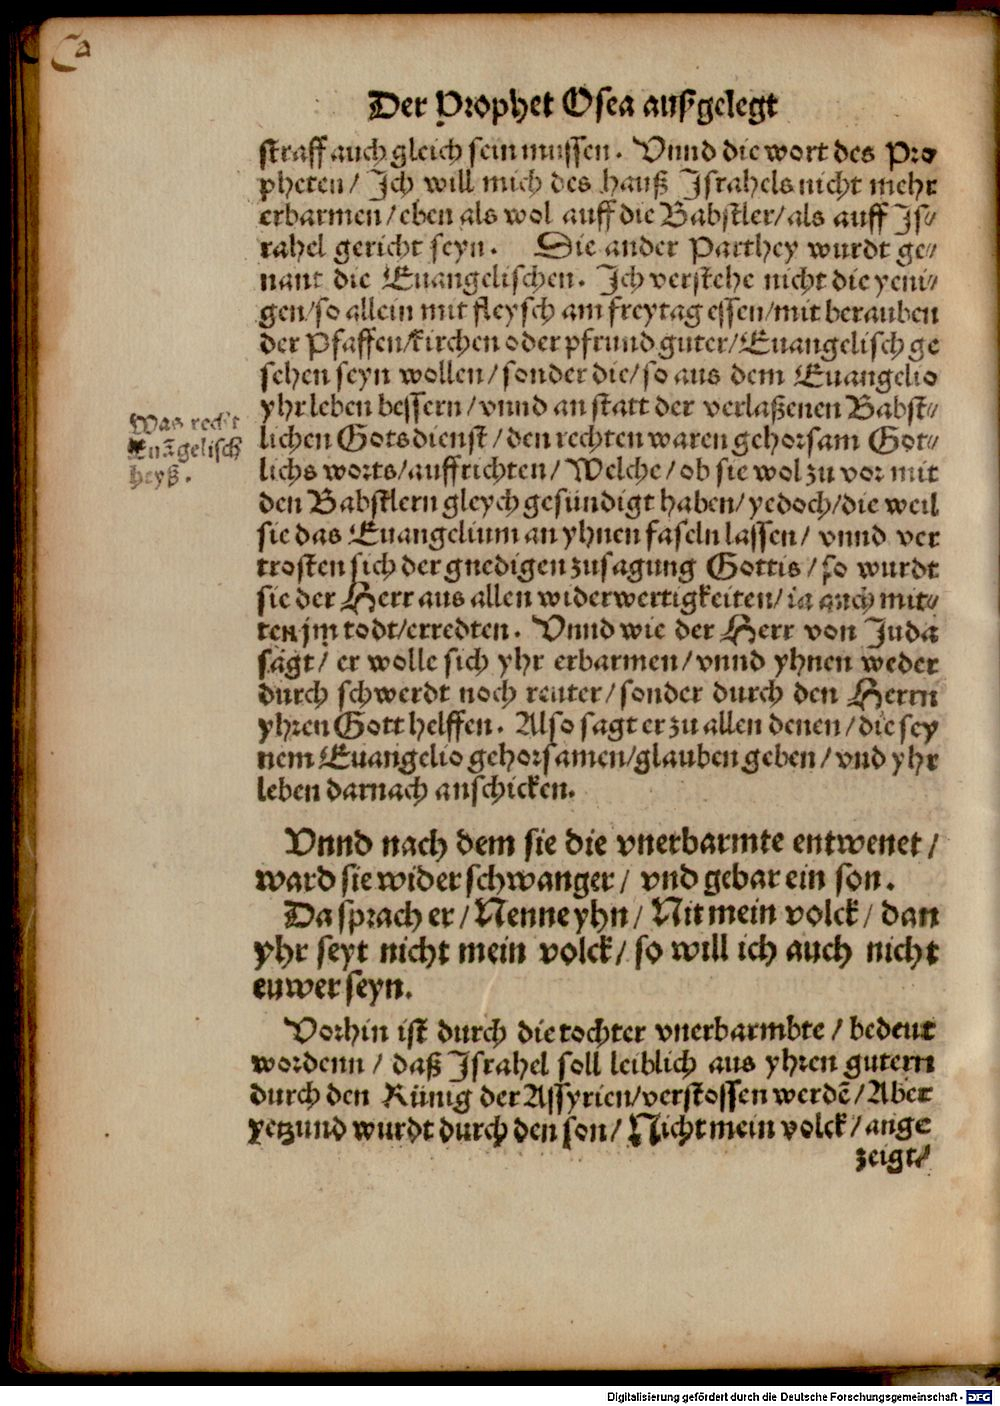 Ca
Der Prophet Osea außgelegt
straff auch gleich sein mussen. Vnnd die wort des Pro
pheten / Ich will mich des hauß Israhels nicht mehr
erbarmen / eben als wol auff die Babstler / als auff Is⸗
rahel gericht seyn. Die ander Parthey wurdt ge⸗
nant die Euangelischen. Ich verstehe nicht die yeni⸗
gen / so allein mit fleysch am freytag essen / mit berauben
der Pfaffen / kirchen oder pfrund guter / Euangelisch ge
sehen seyn wollen / sonder die / so aus dem Euangelio
yhr leben bessern / vnnd an statt der verlaßenen Babst⸗
lichen Gotsdienst / den rechten waren gehorsam Got⸗
lichs worts / auffrichten / Welche / ob sie wol zu vor mit
den Babstlern gleych gesundigt haben / yedoch / die weil
sie das Euangelium an yhnen faseln lassen / vnnd ver
trosten sich der gnedigen zusagung Gottis / so wurdt
sie der Herr aus allen widerwertigkeiten / ia auch mit⸗
ten jm todt / erredten. Vnnd wie der Herr von Juda
sagt / er wolle sich yhr erbarmen / vnnd yhnen weder
durch schwerdt noch reuter / sonder durch den Herrn
yhren Gott helffen. Also sagt er zu allen denen / die sey
nem Euangelio gehorsamen / glauben geben / vnd yhr
leben darnach anschicken.
Was recht
Euāgelisch
heyß.
Vnnd nach dem sie die vnerbarmte entwenet /
ward sie wider schwanger / vnd gebar ein son.
Da sprach er / Nenne yhn / Nit mein volck / dan
yhr seyt nicht mein volck / so will ich auch nicht
euwer seyn.
Vorhin ist durch die tochter vnerbarmbte / bedeut
wordenn / daß Israhel soll leiblich aus yhren gutern
durch den Künig der Assyrien / verstossen werdē / Aber
yetzund wurdt durch den son / Nicht mein volck / ange
zeigt /
Digitalisierung gefördert durch die Deutsche Forschungsgemeinschaft - DFG